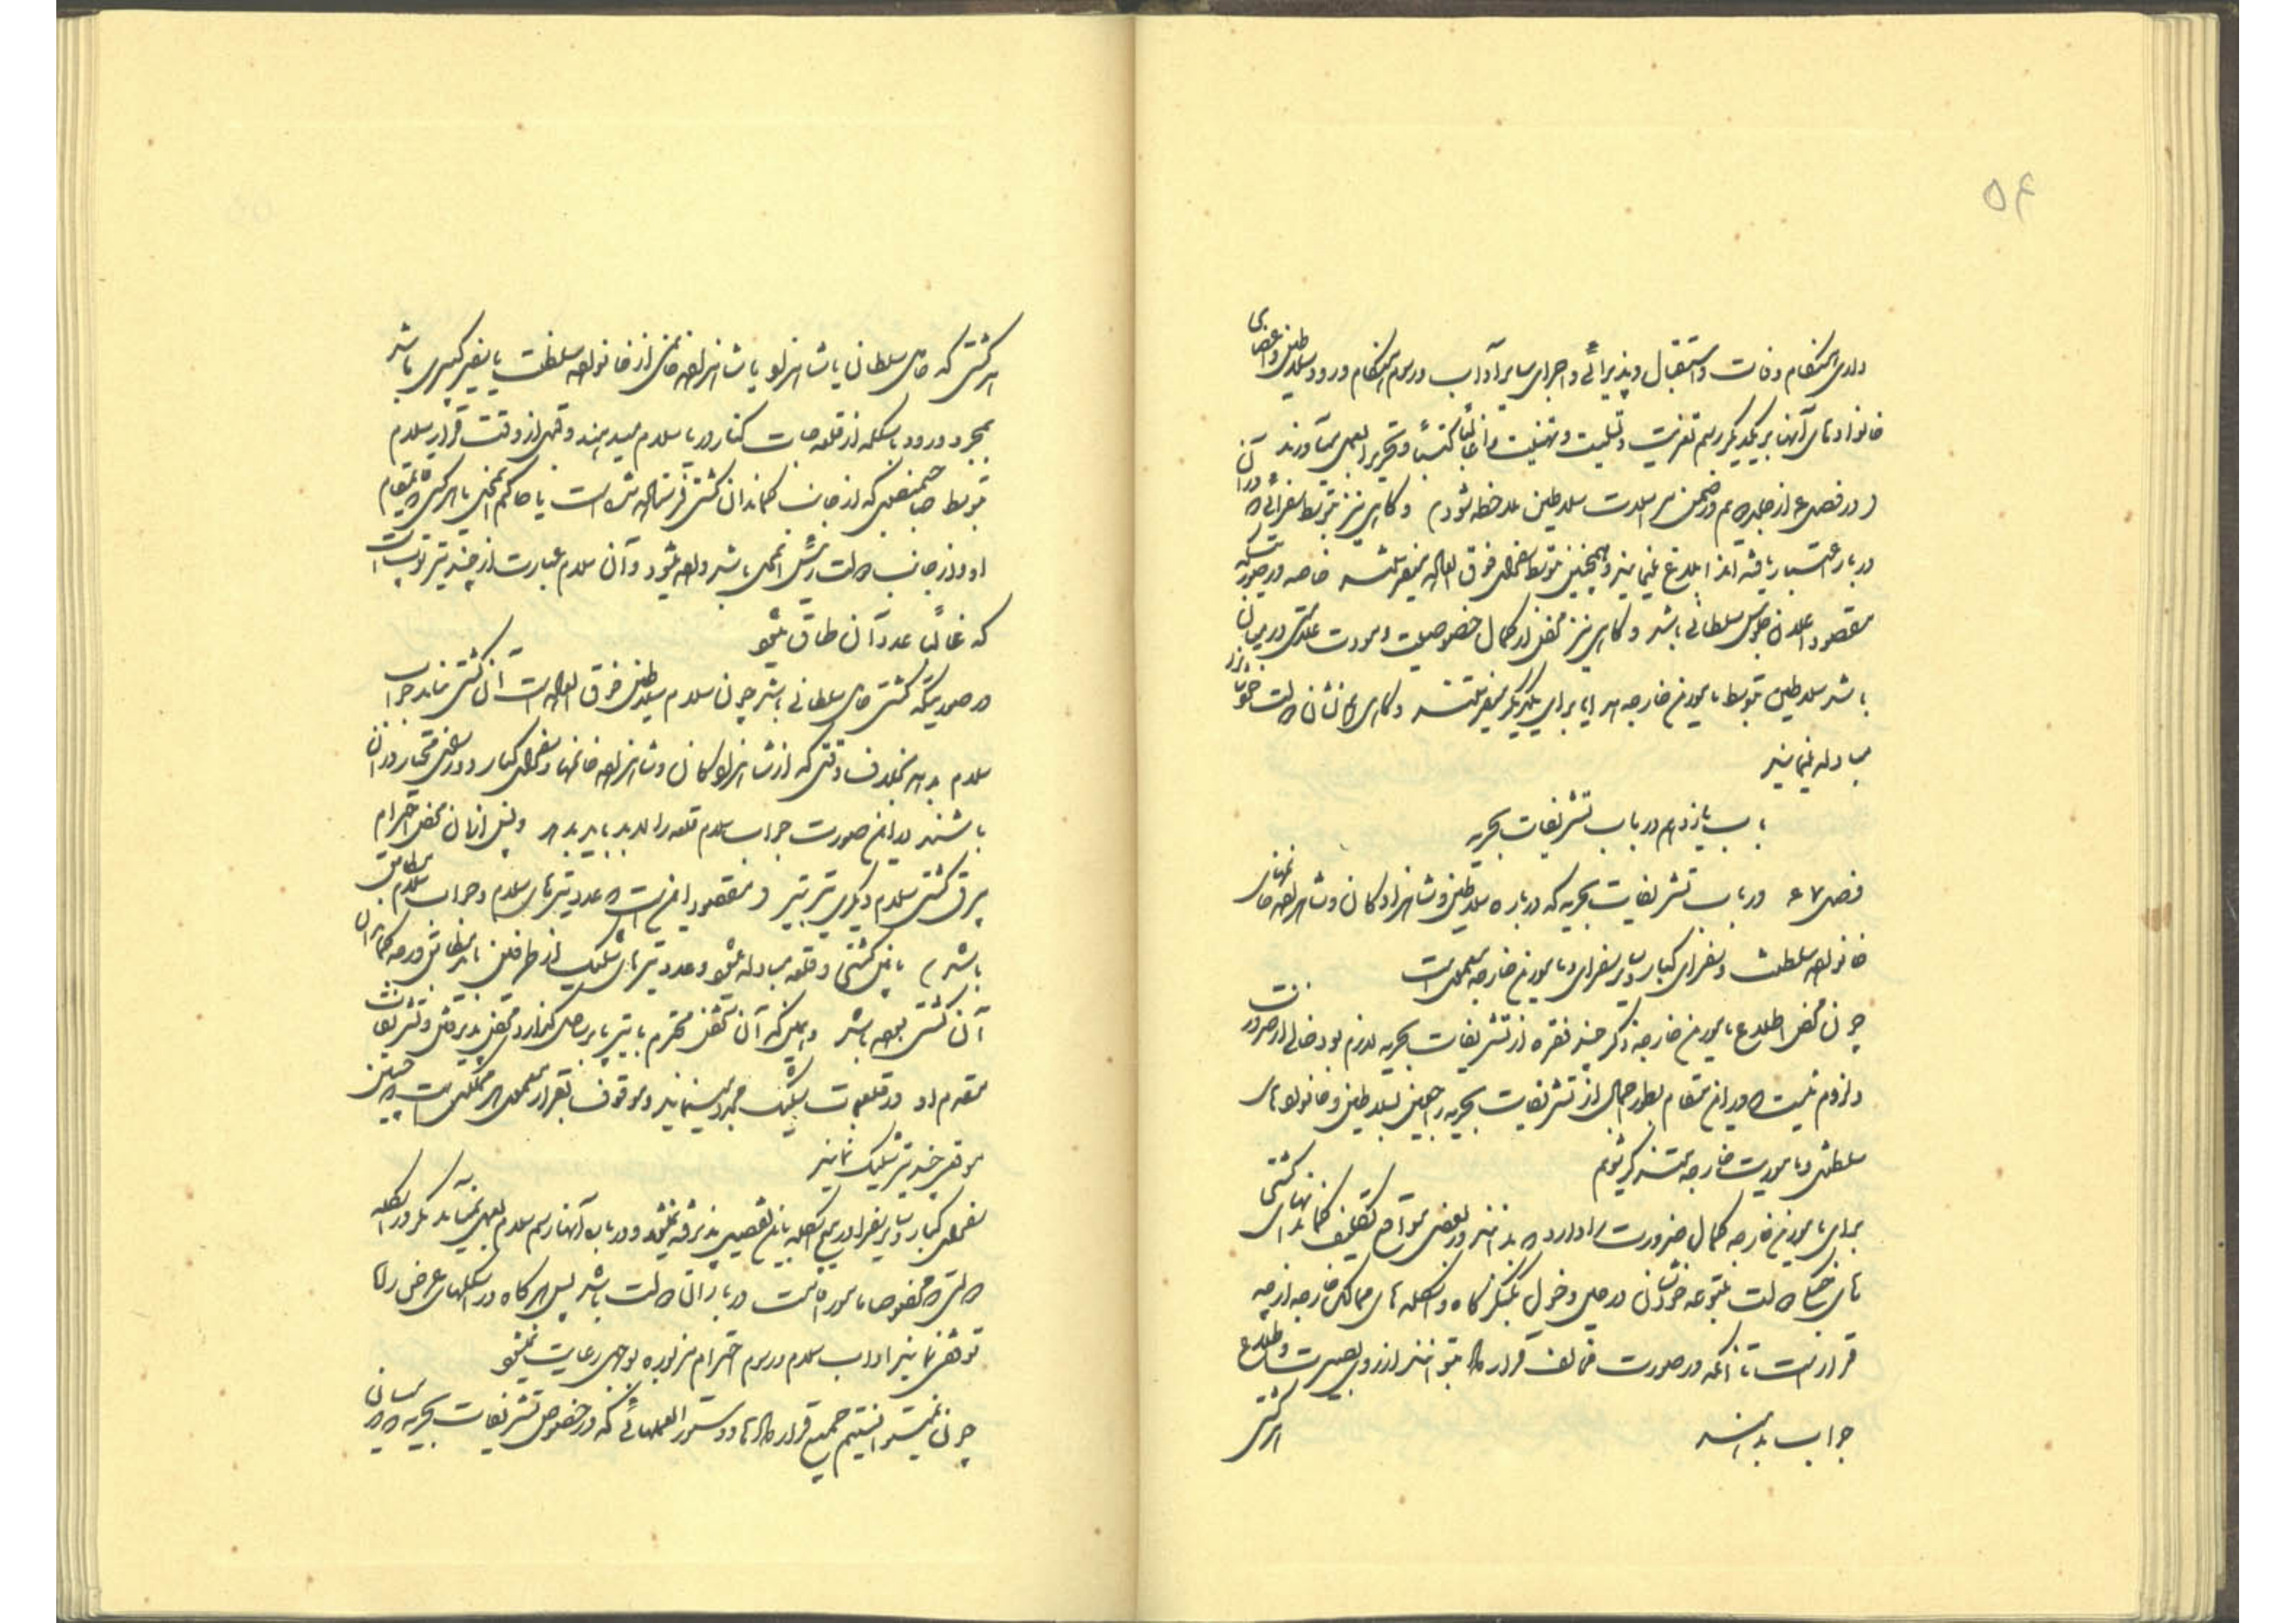 ۵۴
داری هنگام وفات و استقبال و پذیرائی و اجرای سایر آداب و رسوم هنگام ورود سلاطین و اعضای
خانواده‌های آنها بر یکدیگر رسم تعزیت و تسلیت و تهنیت را غالباً کتباً و تحریراً بعمل میآورند
در فصل از جلد در ضمن مراسلات سلاطین ملاحظه شود و گاهی نیز بتوسط سفرائی که در آن
دربار اعتبار یافته‌اند ابلاغ مینمایند و همچنین بتوسط سفرای فوق العاده میفرستند خاصه در صورتیکه
مقصود اعلان جلوس سلطانی باشد و گاهی نیز محض از کمال خصوصیت و مودت که در میان
باشد سلاطین بتوسط مأمورین خارجه هدایا برای یکدیگر میفرستند و گاهی نشان دولت خود را نیز
مبادله مینمایند
باب یازدهم در باب تشریفات بحریه
فصل ۷۴ در باب تشریفات بحریه که درباره سلاطین و شاهزادگان و شاهزاده خانمهای
خانواده سلطنت و سفرای کبار و سایر سفرای و مأمورین خارجه معمول است
چون محض اطلاع مأمورین خارجه ذکر چند فقره از تشریفات بحریه لازم بود و خالی از ضرورت
و لزوم نیست که در این مقام بطور اجمال از تشریفات بحریه راجعین بسلاطین و خانواده‌های
سلطنتی و مأموریت خارجه متذکر شویم
برای مأمورین خارجه کمال ضرورت را دارد که بدانند در بعضی مواقع تکلیف کماندانهای کشتی
های جنگی دولت متبوعه خودشان در حین دخول بلنگرگاه و اسکله‌های ممالک خارجه از چه
قرار است تا آنکه در صورت مخالف قرارداد بتوانند از روی بصیرت و اطلاع
جواب بدهند
هر کشتی
هر کشتی که حامل سلطانی یا شاهزاده یا شاهزاده خانمی از خانواده سلطنت یا سفیر کبیری باشد
بمجرد ورود باسکله از قلعه‌جات کنار دریا سلام میدهند و قبل از وقت قرار سلام
بتوسط صاحبمنصبی که از جانب کماندان کشتی فرستاده شده است با حاکم محل یا هر کس که بمقام
او و از جانب دولت رئیس محل باشد داده میشود و آن سلام عبارت از چند تیر توپ است
که غالباً عدد آن طاق میشود
در صورتیکه کشتی حامل سلطانی باشد چون سلام سلاطین فوق العاده است آن کشتی نباید جواب
سلام بدهد بخلاف وقتی که از شاهزادگان و شاهزاده خانمها و سفرای کبار و وزرای مختار در آن
باشند در این صورت جواب سلام قلعه را لابد باید بدهد و پس از آن محض احترام
بیرق کشتی سلام دیگری تیر بتیر و مقصود این است که عدد تیرهای سلام و جواب سلام مطابق
باشد مابین کشتی و قلعه مبادله میشود و عدد تیرهای شلیک از طرفین باید مطابق درجه کماندان
آن کشتی بوده باشد و همین که آن شخص محترم یا بتیر یا بر ساحل گذارد محض پذیرفتن و تشریفات
مقدم او در قلعجات شلیک مجدد مینمایند و موقوف بقرار معمول هر مملکتی است که چنین
موقع چند تیر شلیک نمایند
سفرای کبار و سایر سفرا در هیچ اسکله باین تفصیل پذیرفته نمیشوند و درباره آنها رسم سلام بعمل نمیآید مگر در اسکله
دولتی که مخصوصاً مأمور اقامت دربار آن دولت باشد پس هر گاه در اسکله‌های عرض راه
توقف نمایند آداب سلام و رسوم احترام مزبوره بوجهی رعایت نمیشود
چون نمیتوانستیم جمیع قراردادها و دستورالعملهائی که در خصوص تشریفات بحریه در میان